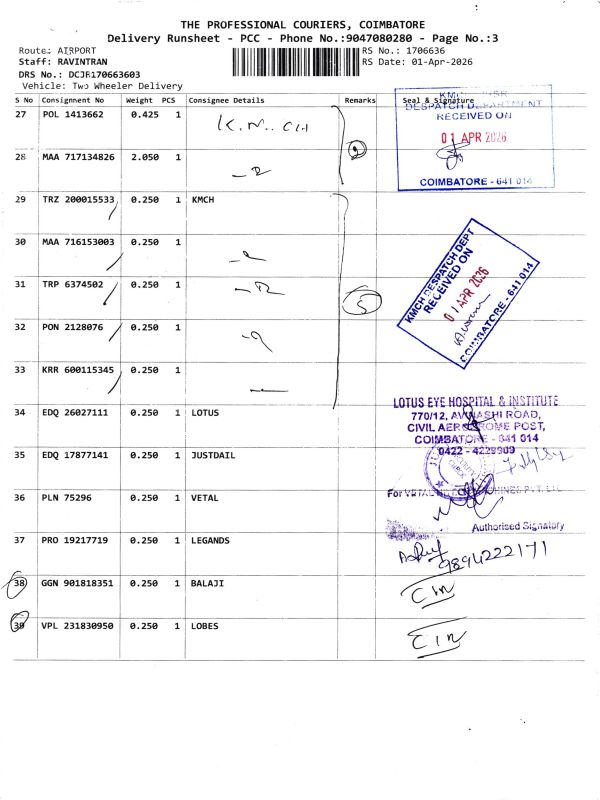 THE PROFESSIONAL COURIERS, COIMBATORE
Delivery Runsheet - PCC - Phone No.:9047080280 - Page No.:3
Route: AIRPORT
RS No.: 1706636
Staff: RAVINTRAN
RS Date: 01-Apr-2026
DRS No.: DCJR170663603
Vehicle: Two Wheeler Delivery
S No Consignment No Weight PCS Consignee Details Remarks Seal & Signature
27 POL 1413662 0.425 1
28 MAA 717134826 2.050 1
29 TRZ 200015533 0.250 1 KMCH
30 MAA 716153003 0.250 1
31 TRP 6374502 0.250 1
32 PON 2128076 0.250 1
33 KRR 600115345 0.250 1
34 EDQ 26027111 0.250 1 LOTUS
35 EDQ 17877141 0.250 1 JUSTDAIL
36 PLN 75296 0.250 1 VETAL
37 PRO 19217719 0.250 1 LEGANDS
38 GGN 901818351 0.250 1 BALAJI
39 VPL 231830950 0.250 1 LOBES
RECEIVED ON
01 APR 2026
COIMBATORE - 641 014
KMCH DESPATCH DEPT
RECEIVED ON
01 APR 2026
COIMBATORE - 641 014
LOTUS EYE HOSPITAL & INSTITUTE
770/12, AVINASHI ROAD,
CIVIL AERODROME POST,
COIMBATORE - 641 014
0422 - 4229909
Authorised Signatory
9894222171